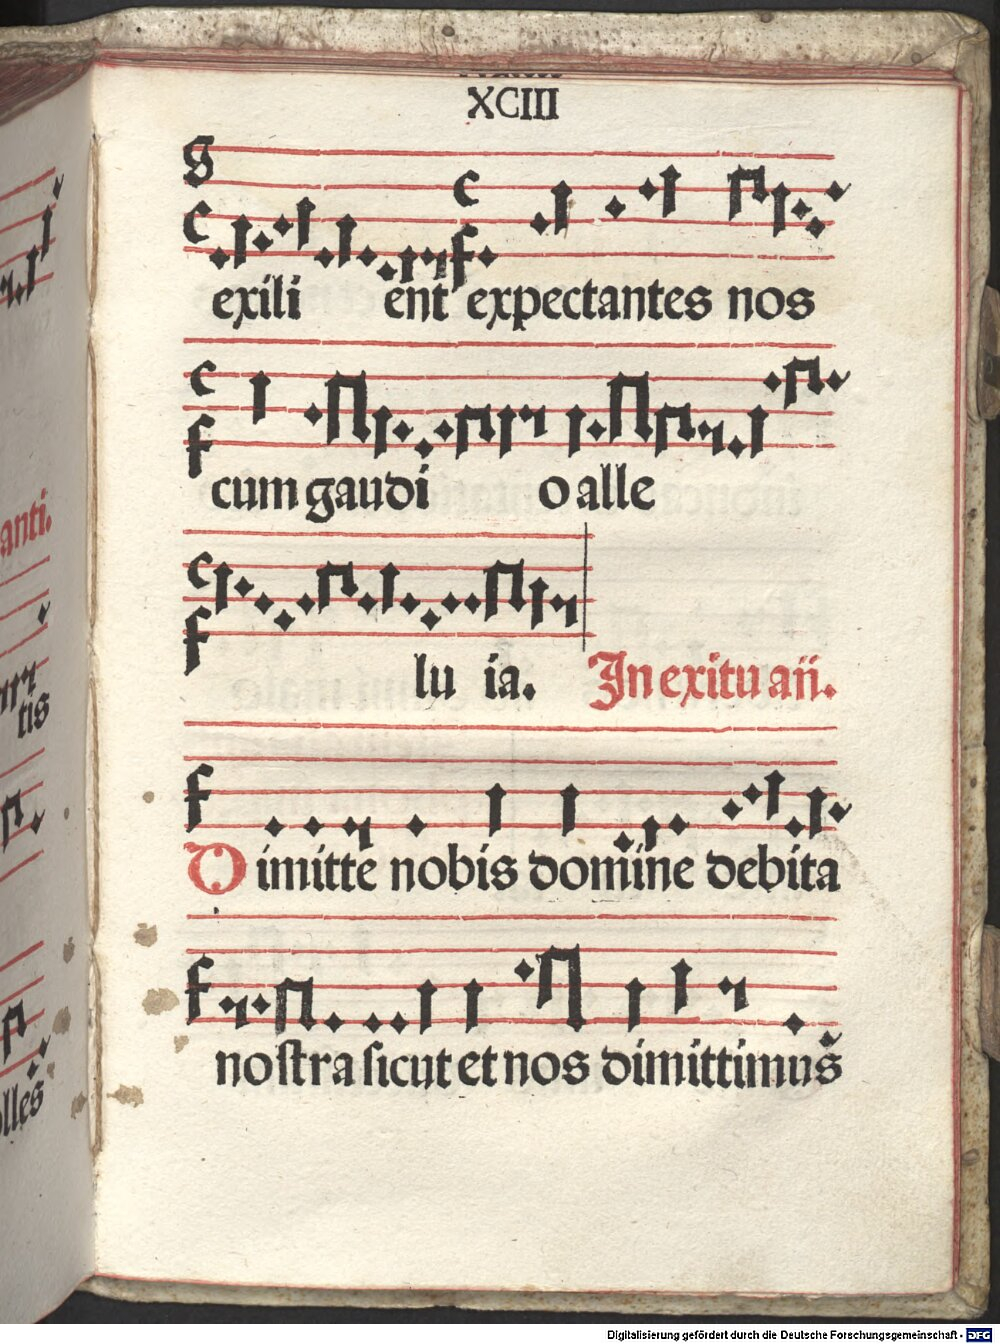 XCIII
exili ent expectantes nos
cum gaudi o alle
lu ia. In exitu añ.
Dimitte nobis domine debita
nostra sicut et nos dimittimus̃
anti.
tis
olles̃
Digitalisierung gefördert durch die Deutsche Forschungsgemeinschaft - DFG